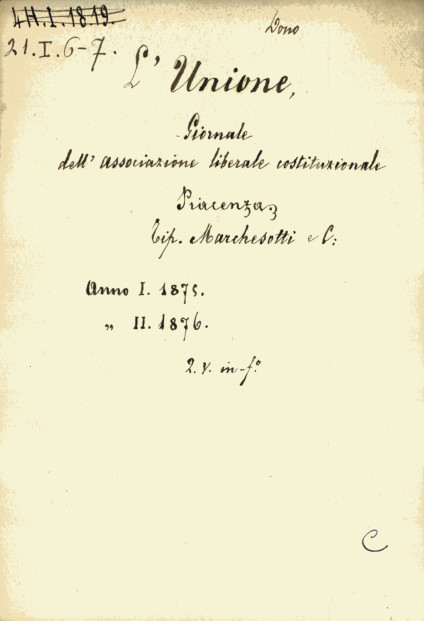 4.H.I.1819.
Dono
21.I.6-7.
L' Unione,
Giornale
dell' associazione liberale costituzionale
Piacenza,
Tip. Marchesotti e C:
Anno I. 1875.
„ II. 1876.
2. v. in-fº.
C